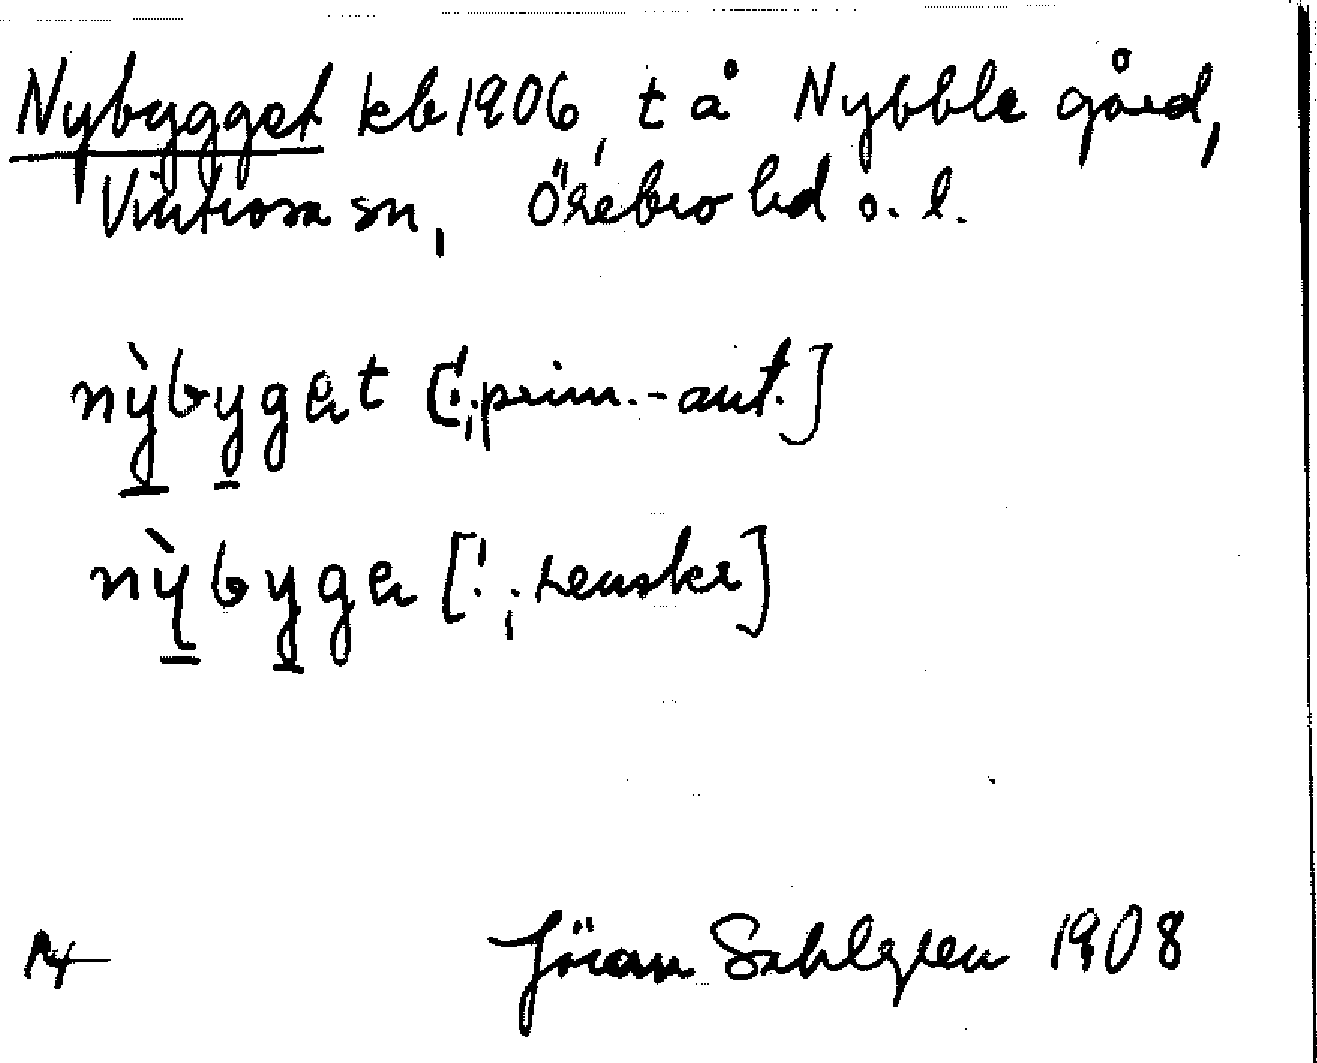 Nybygget kb 1906, t å Nybble gård,
Vintrosa sn, Örebro hd ö. l.
nỳbygat [prim.-aut.]
nỳbyga [svenske]
Jöran Sahlgren 1908